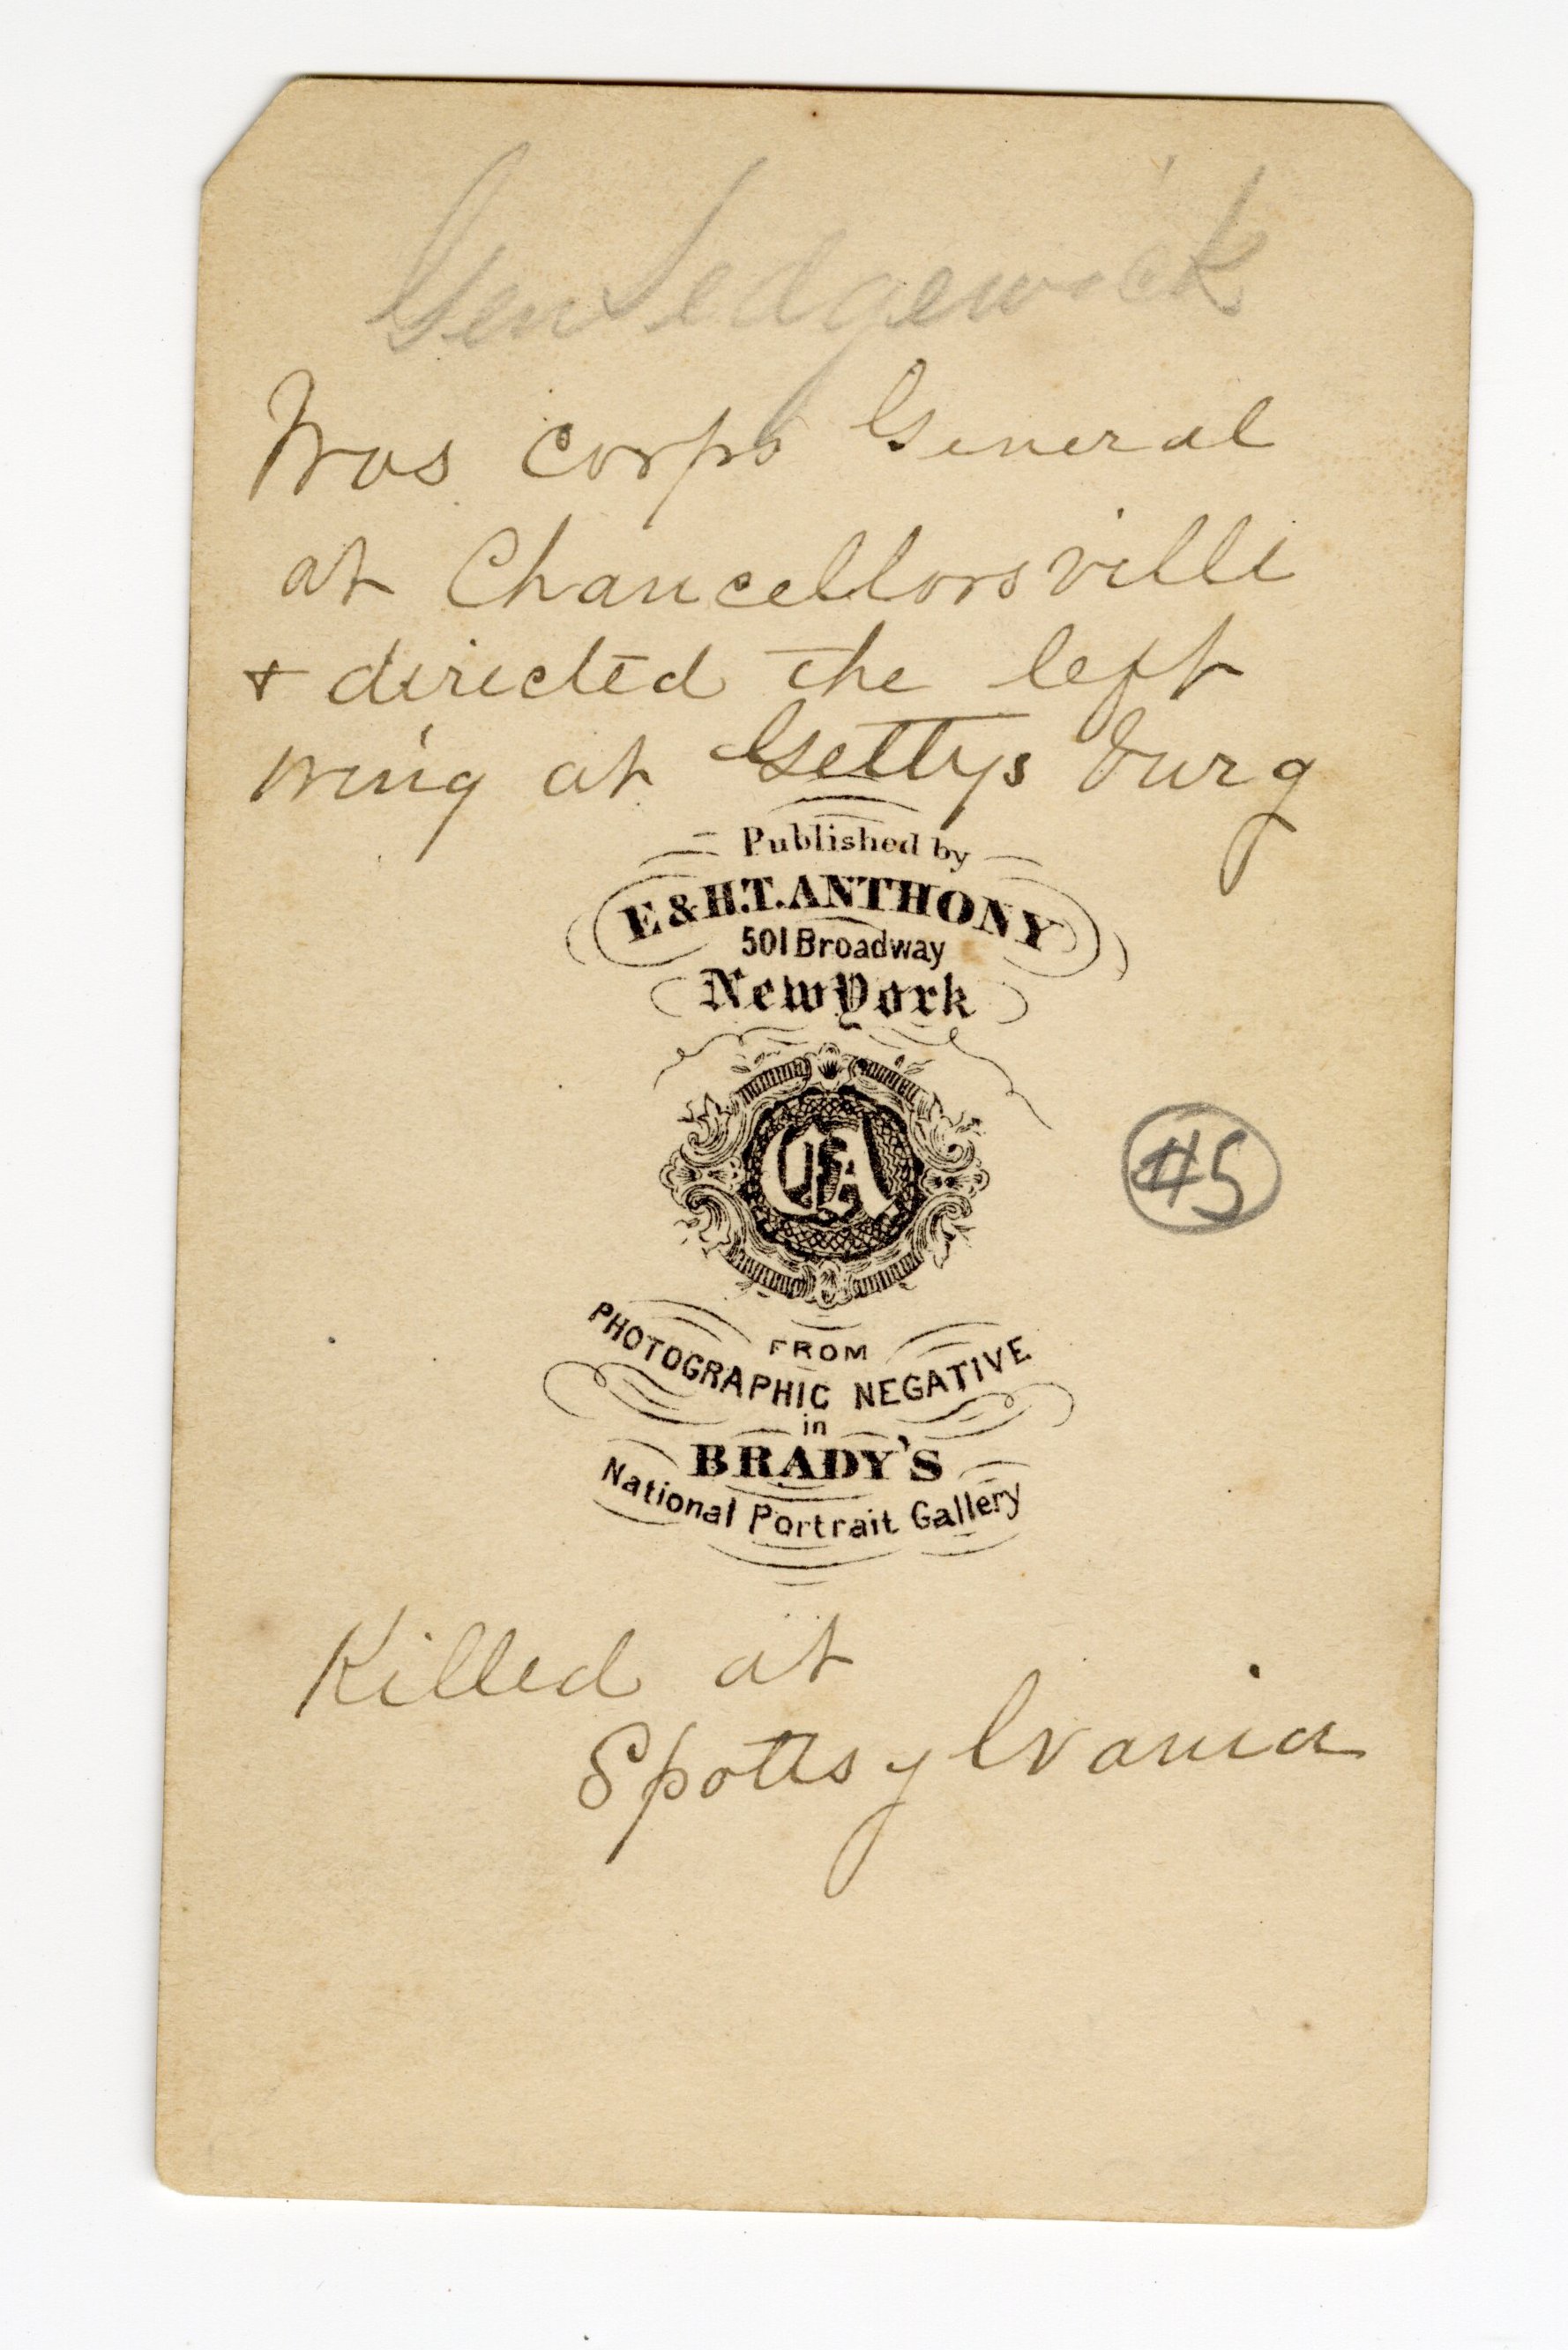 Gen Sedgewick
Was corps General
at Chancellorsville
+ directed the left
wing at Gettysburg
Published by
E & H.T. ANTHONY
501 Broadway
New York
EA
#5
FROM
PHOTOGRAPHIC NEGATIVE
in
BRADY'S
National Portrait Gallery
Killed at
Spottsylvania